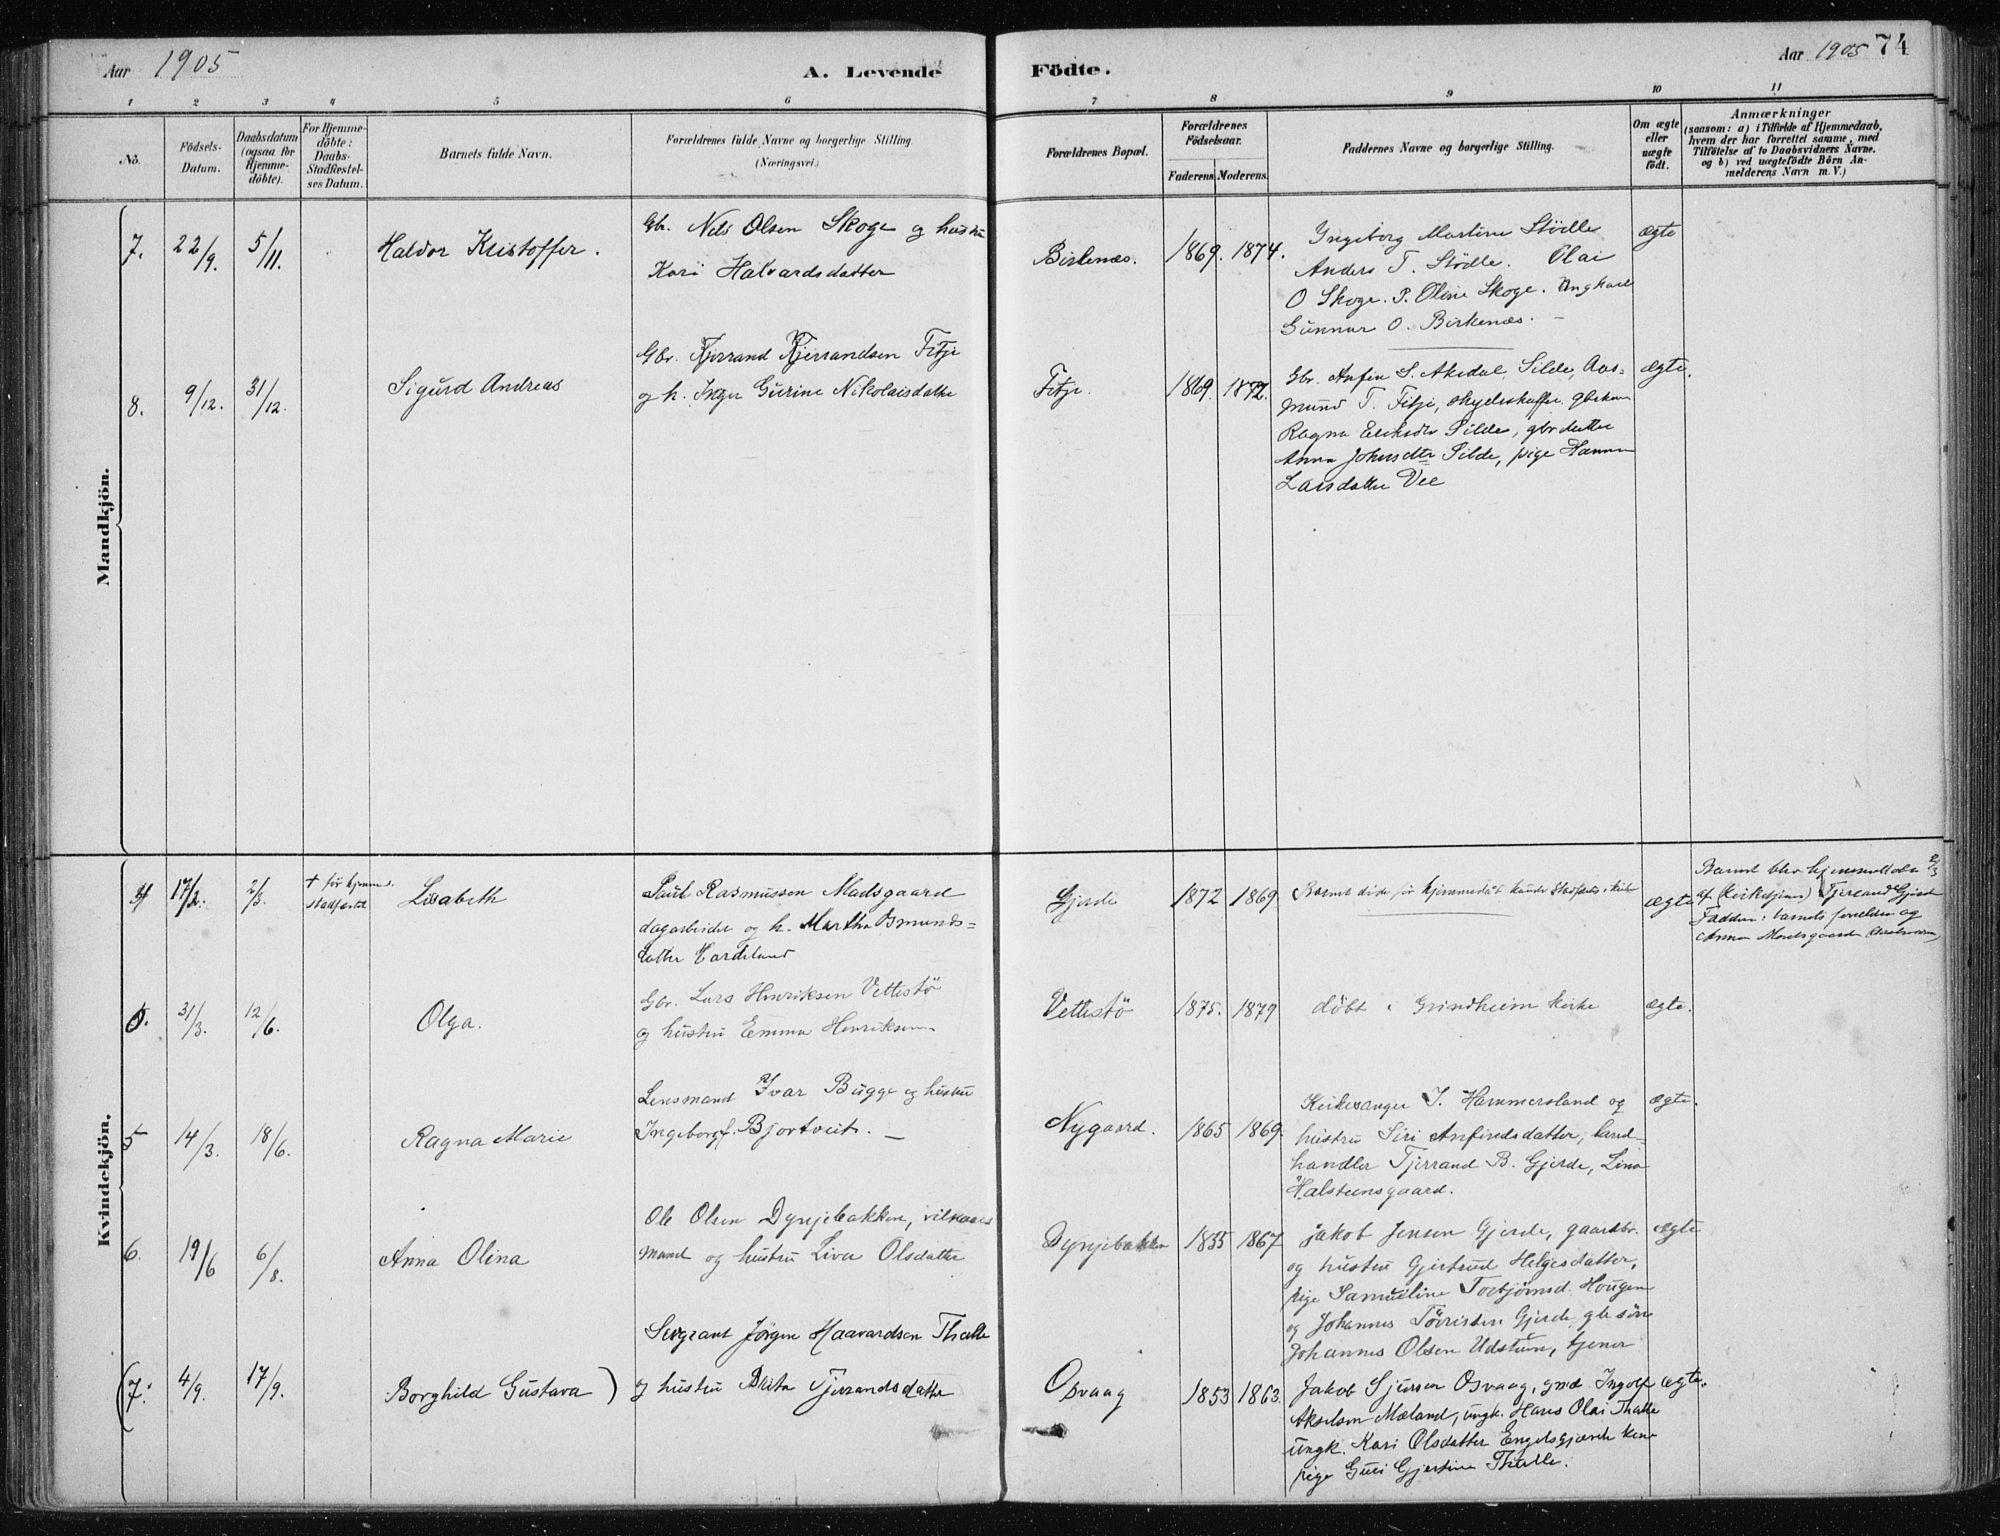 Aar 1905
A. Levende
Födte.
Aar 1905 74
1 2 3 4 5 6 7 8 9 10 11
No.
Födsels-
Datum.
Daabsdatum
(ogsaa for
Hjemme-
döbte).
For Hjemme-
döbte:
Daabs-
Stadfæstel-
ses Datum.
Barnets fulde Navn.
Forældrenes fulde Navne og borgerlige Stilling
(Næringsvei.)
Forældrenes Bopæl.
Forældrenes
Födselsaar.
Faderens. Moderens.
Faddernes Navne og borgerlige Stilling.
Om ægte
eller
uægte
födt.
Anmærkninger
(saasom: a) i Tilfælde af Hjemmedaab,
hvem der har forrettet samme, med
Tilföielse af to Daabsvidners Navne.
og b) ved uægtefödte Börn An-
melderens Navn m. V.)
Mandkjön.
7. 22/9. 5/11. Haldor Kristoffer.
Gbr. Nels Olsen Skoge og hustru
Kari Halvardsdatter
Birkenæs. 1869. 1874.
Ingeborg Martine Stödle
Anders T. Stödle. Olai
O Skoge. P. Oline Skoge. Ungkarl
Gunnar O. Birkenæs. –
ægte
8. 9/12. 31/12. Sigurd Andreas
Gbr. Tjerrand Tjerrandsen Fitje
og h. Inger Gurine Nikolaisdatter
Fitje. 1869. 1872.
Gbr. Anfin S. Aksdal, Silde, Aas-
mund T. Fitje, skydsskaffer
Ragna Eriksdtr Silde, gbr datter
Anna Johnsdtr Silde, pige Hanna
Larsdatter Vee
ægte.
Kvindekjön.
4 17/2. 2/3. † før hjemmed.
stadfæstet
Lisabeth
Paul Rasmussen Madsgaard
dagarbeider og h. Martha Osmunds=
datter Hardeland
Gjerde 1872 1869
Barnet døde før hjemmedåb kunde stadfæstes i kirke
ægte
Barnet blev hjemmedøbt 2/3
af (Kirkesjener) Tjerrand Gjerde
Faddere: barnets forældre og
Anna Madsgaard
5. 31/3. 12/6. Olga.
Gbr. Lars Henriksen Vettestö
og hustru Emma Henriksen
Vettestö 1875. 1879
döbt i Grindheim kirke
ægte.
5 14/3. 18/6. Ragna Marie
Lensmand Ivar Bugge og hustru
Ingeborg f. Bjortveit. –
Nygaard. 1865 1869.
Kirkesanger J. Hammersland og
hustru Siri Anfindsdatter, land-
handler Tjerrand B. Gjerde, Lina
Halsteensgaard.
ægte.
6. 19/6 6/8. Anna Olina
Ole Olsen Dyrjebakken, vilkaars
mand og hustru Liva Olsdatter
Dyrjebakken 1855 1867
Jakob Jensen Gjerde, gaardbr.
og hustru Gjertrud Helgesdatter,
pige Samueline Torbjörnsd. Hougen
og Johannes Törristen Gjerde, gbr sön
Johannes Olsen Udstuen, tjener
ægte
(7. 4/9. 17/9. Borghild Gustava)
Sergeant Jörgen Haavardsen Thalle
og hustru Brita Tjerrandsdatter
Osvaag 1853 1863.
Jakob Sjursen Osvaag, gmd Ingolf
Akselsen Mæland, ungk. Hans Olai Thalle
ungk. Kari Olsdatter Engelsgjerde
pige Guri Gjertine Thalle.
ægte.